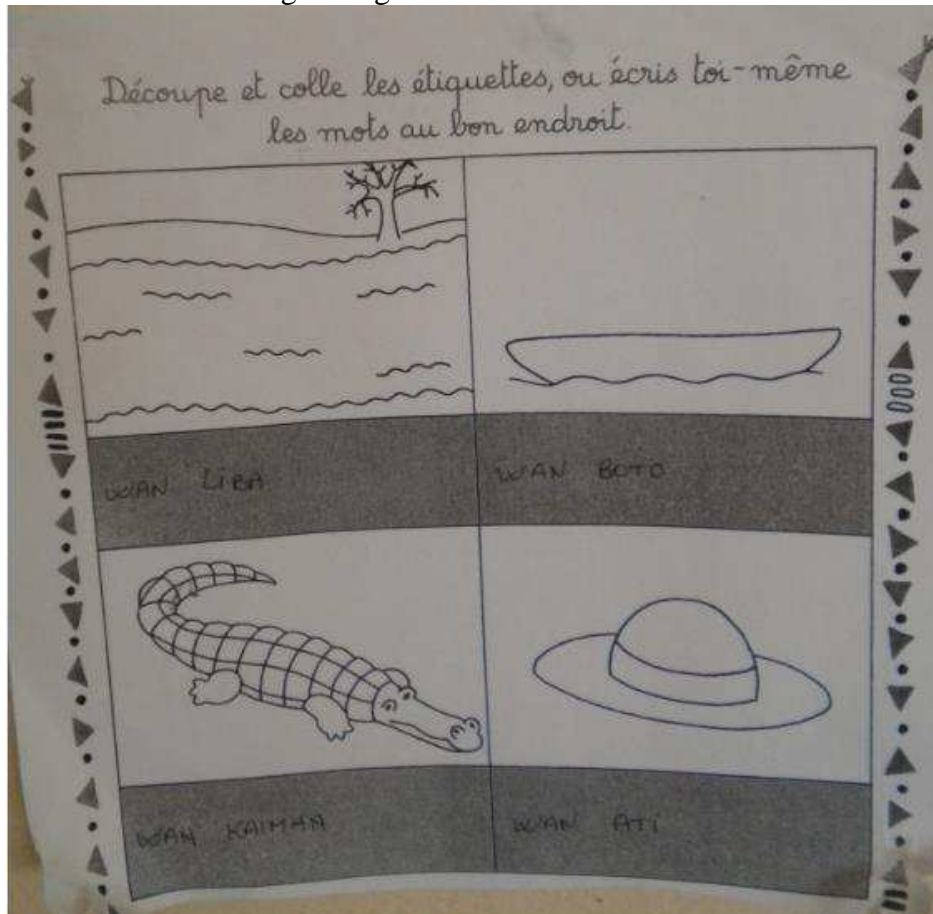 Découpe et colle les étiquettes, ou écris toi-même
les mots au bon endroit.
WAN LiBA
WAN BOTO
WAN KAIMAN
WAN ATi